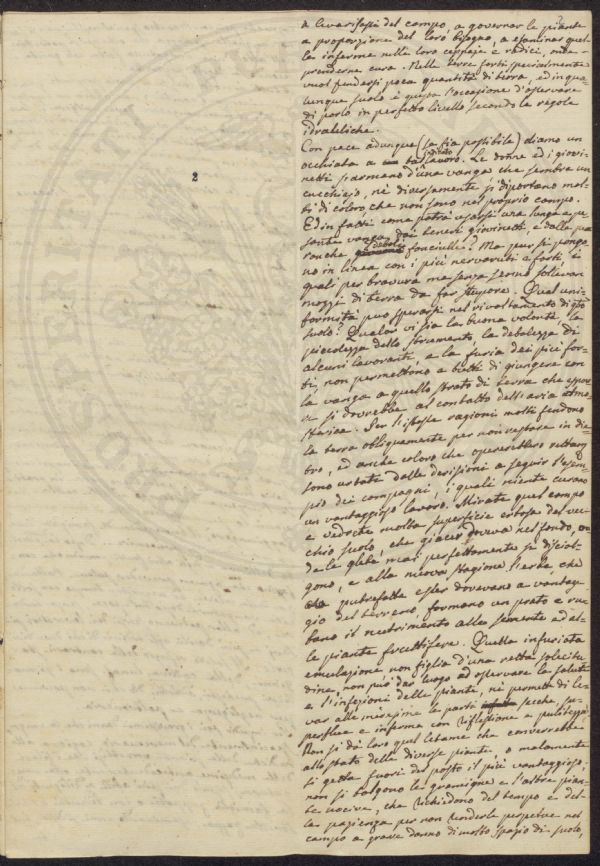 a livarsossi del campo, a governar le piante
a proporzione del loro bisogno, a esaminar quel-
le inferme nelle loro ceppaje e radici, onde
prenderne cura. Nelle terre forti specialmente
vuol fendersi poca quantità di terra, ed in qua-
lunque suolo è questa l'occasione d'osservare
di porlo in perfetto livello secondo le regole
idrauliche.
Con pace adunque (se sia possibile) diamo un
occhiata a tal lavoro. Le donne ed i giovi-
netti s'armano d'una vanga che sembra un
cucchiajo, nè diversamente si diportano mol-
ti di coloro che non sono nel proprio campo.
Ed in fatti come potrà usarsi una lunga e pe-
sante vanga dai teneri giovinetti, e dalle
fanciulle? Ma pur si pongo-
no in linea con i più nerboruti e forti i
quali per bravura ma senza senno sollevan
mozzi di terra da far stupore. Qual uni-
formità può sperarsi nel rivoltamento di gto
suolo? Qualor vi sia la buona volontà, la
picciolezza dello strumento, la debolezza di
alcuni lavoranti, e la furia dei più for-
ti, non permettono a tutti di giungere con
la vanga a quello strato di terra che espor-
si dovrebbe al contatto dell'aria atmo-
sferica. Per l'istesse ragioni molti fendono
la terra obliquamente per non restare in die-
tro, ed anche coloro che opererebbero
sono urtati dalle derisioni a seguir l'esem-
pio dei compagni, i quali niente curano
un vantaggioso lavoro. Mirate quel campo
e vedrete molta superficie erbosa del vec-
chio suolo, che giacer doveva nel fondo, on-
de le glebe mai perfettamente si disciol-
gono, e alla nuova stagione l'erbe che
putrefatte esser dovevano a vantag-
gio del terreno, formano un prato e ru-
bano il nutrimento alle semente ed al-
le piante fruttifere. Quella infuriata
emulazione non figlia d'una retta sollecitu-
dine, non può dar luogo ad osservare la salute
e l'infezioni delle piante, nè permette di le-
var alle medesime le parti secche, su-
perflue e inferme con riflessione e pulitezza.
Non si dà loro quel letame che converrebbe
allo stato delle diverse piante, o malamente
si getta fuori del posto il più vantaggioso,
non si tolgono le gramigne e l'altre pian-
te nocive, che richiedono del tempo e del-
la pazienza per non renderle perpetue nel
campo a grave danno di molto spazio di suolo,